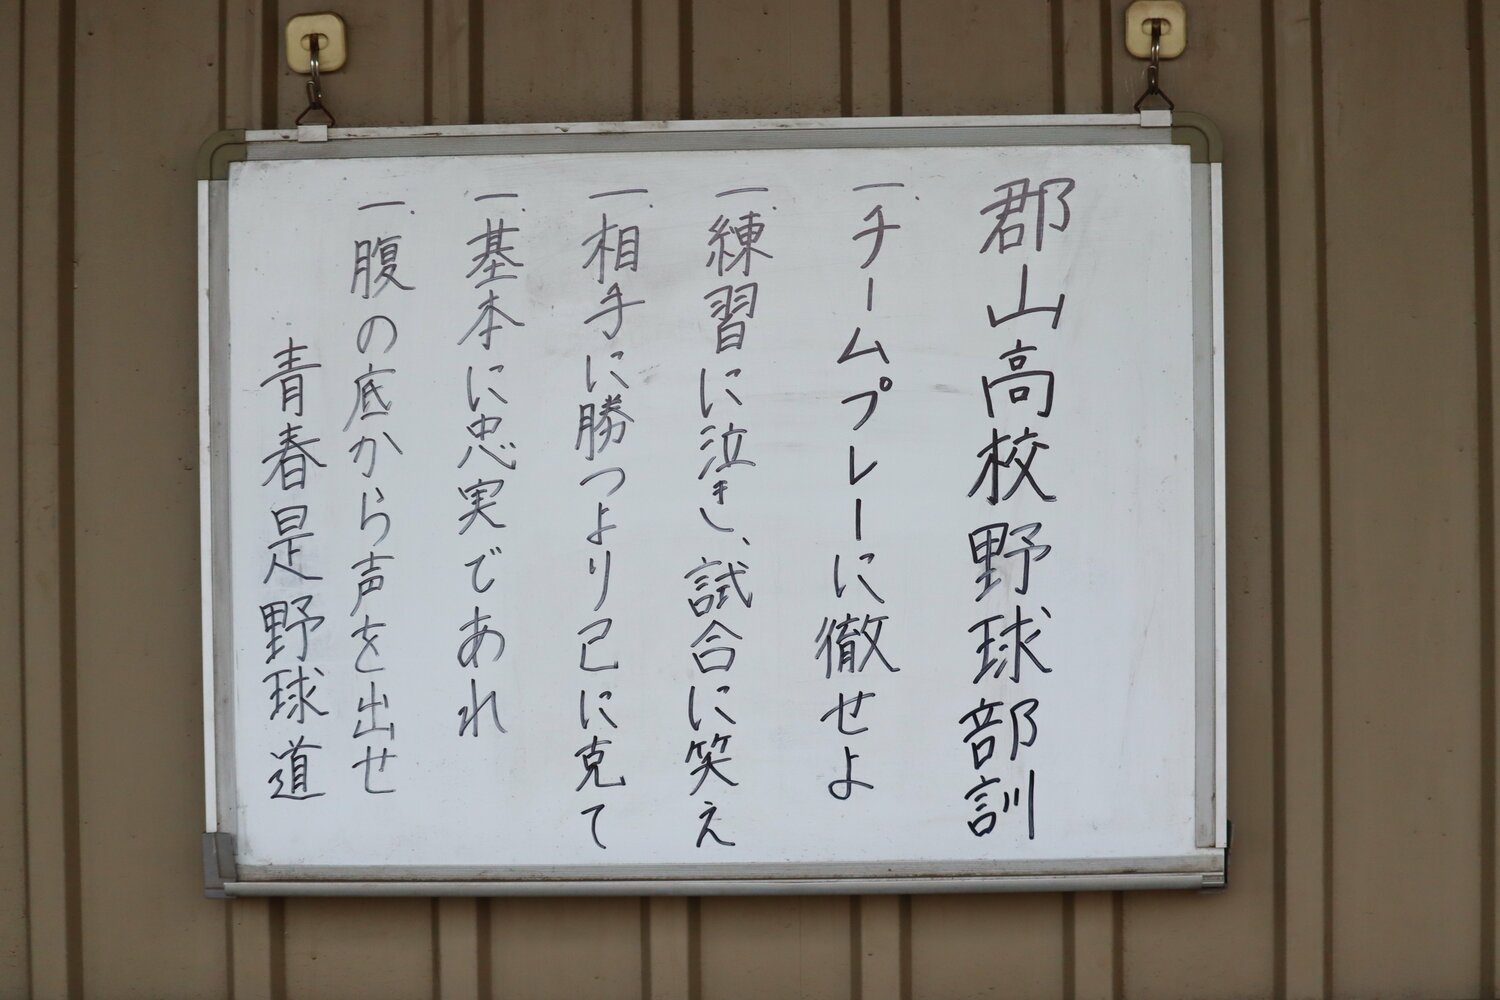 郡山高校野球部訓
一、チームプレーに徹せよ
一、練習に泣き、試合に笑え
一、相手に勝つより己に克て
一、基本に忠実であれ
一、腹の底から声を出せ
青春是野球道